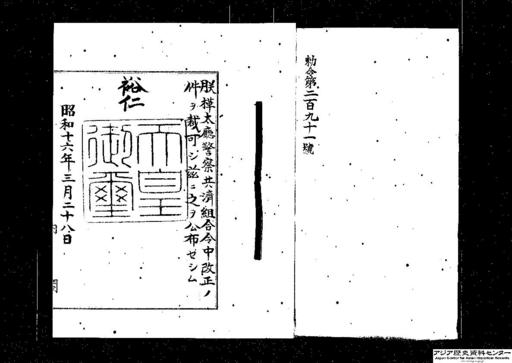 勅令第二百九十一號
朕樺太廳警察共濟組合令中改正ノ
件ヲ裁可シ茲ニ之ヲ公布セシム
裕仁
天皇
御璽
昭和十六年三月二十八日
内閣
アジア歴史資料センター
Japan Center for Asian Historical Records